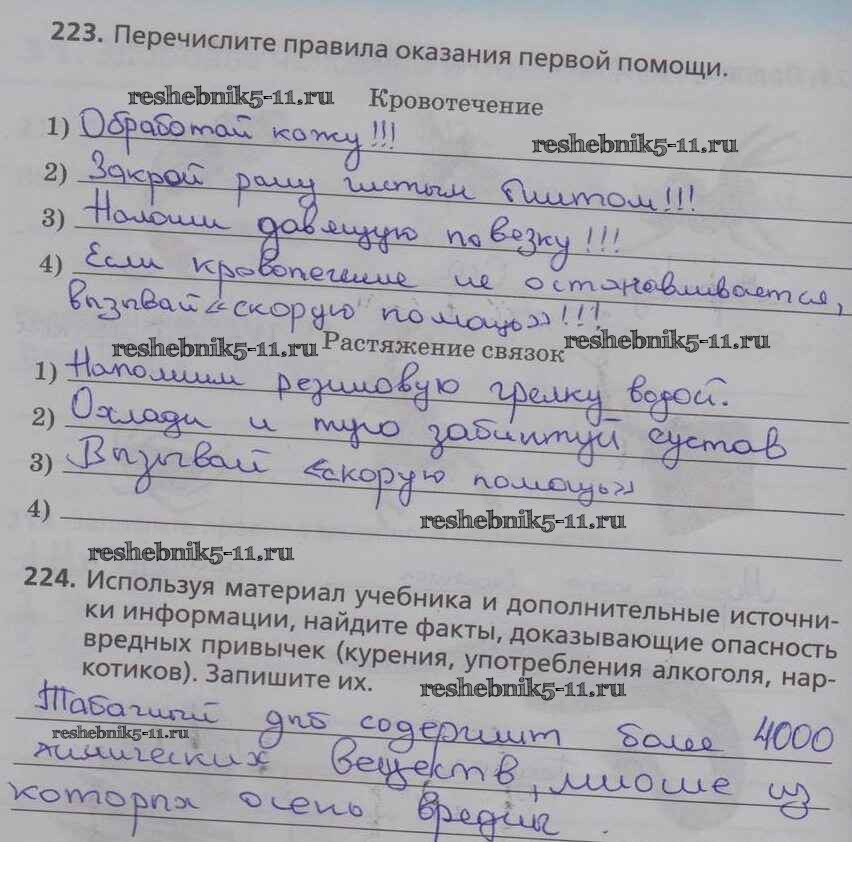 223. Перечислите правила оказания первой помощи.
reshebnik5-11.ru Кровотечение
1) Обработай кожу!!! reshebnik5-11.ru
2) Закрой рану чистым бинтом!!!
3) Наложи давящую повезку!!!
4) Если кровотечение не останавливается,
вызывай «скорую помощь»!!!
reshebnik5-11.ru Растяжение связок reshebnik5-11.ru
1) Наполни резиновую грелку водой.
2) Охлади и туго забинтуй сустав
3) Вызывай «скорую помощь»
4) reshebnik5-11.ru
reshebnik5-11.ru
224. Используя материал учебника и дополнительные источни-
ки информации, найдите факты, доказывающие опасность
вредных привычек (курения, употребления алкоголя, нар-
котиков). Запишите их. reshebnik5-11.ru
Табачный содержит более 4000
reshebnik5-11.ru
химических веществ, многие из
которых очень вредны.